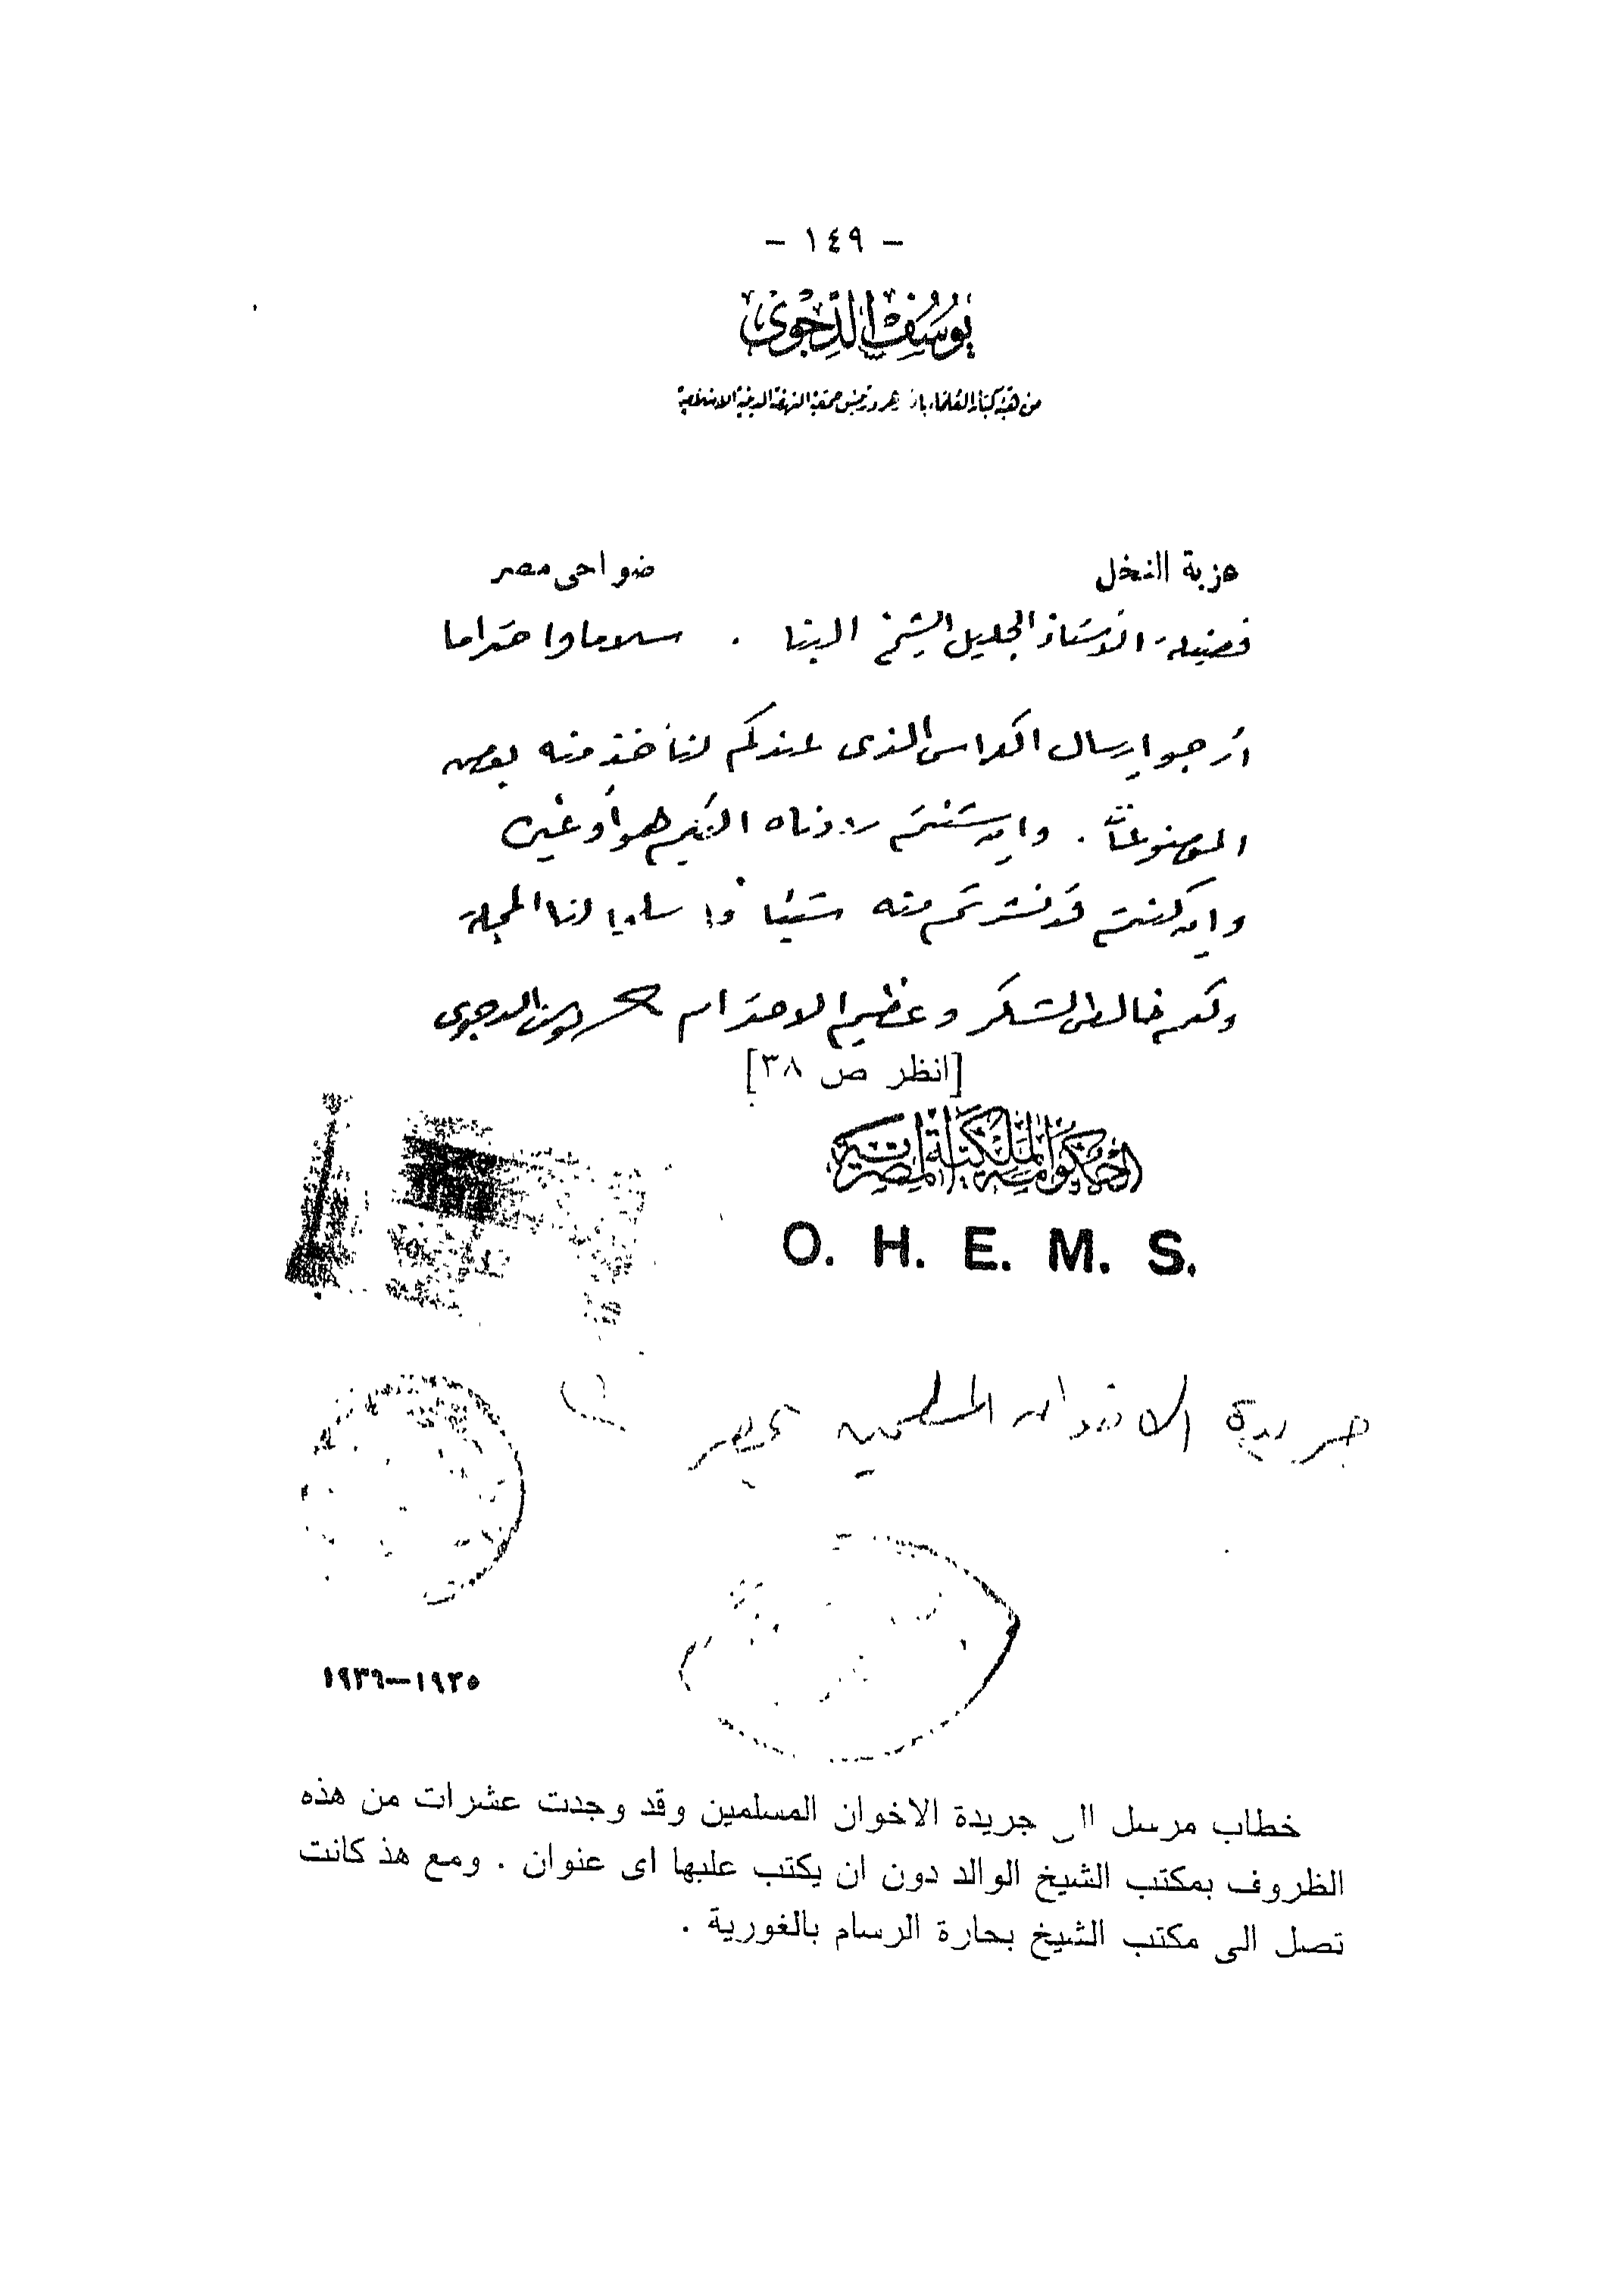 - ١٤٩ -
يوسف الدجوى
من هيئة كبار العلماء بالأزهر ورئيس جمعية النهضة الدينية الاسلامية
عزبة النخل ضواحى مصر
فضيلة الأستاذ الجليل الشيخ البنا . سلاما واحتراما
أرجو إرسال الكراس الذى عندكم لنأخذ منه بعض
الموضوعات . وإن شئتم رددناه اليكم هو أو غيره
وإن كنتم قد نشرتم منه شيئا فأرسلوا لنا المجلة
ولكم خالص الشكر وعظيم الاحترام يوسف الدجوى
[انظر ص ٣٨]
الحكومة الملكية المصرية
O. H. E. M. S.
جريدة الاخوان المسلمين بمصر
١٩٣٥-١٩٣٦
خطاب مرسل الى جريدة الاخوان المسلمين وقد وجدت عشرات من هذه
الظروف بمكتب الشيخ الوالد دون ان يكتب عليها اى عنوان . ومع هذ كانت
تصل الى مكتب الشيخ بحارة الرسام بالغورية .